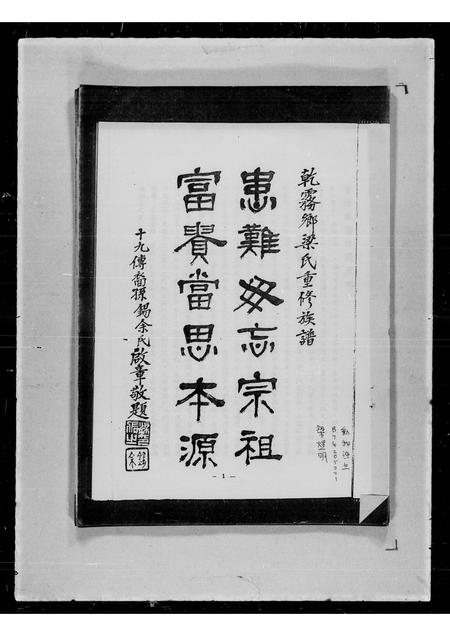 乾霧鄉梁氏重修族譜
患難毋忘宗祖
富貴當思本源
十九傳裔孫錫余氏啟章敬題
- 1 -